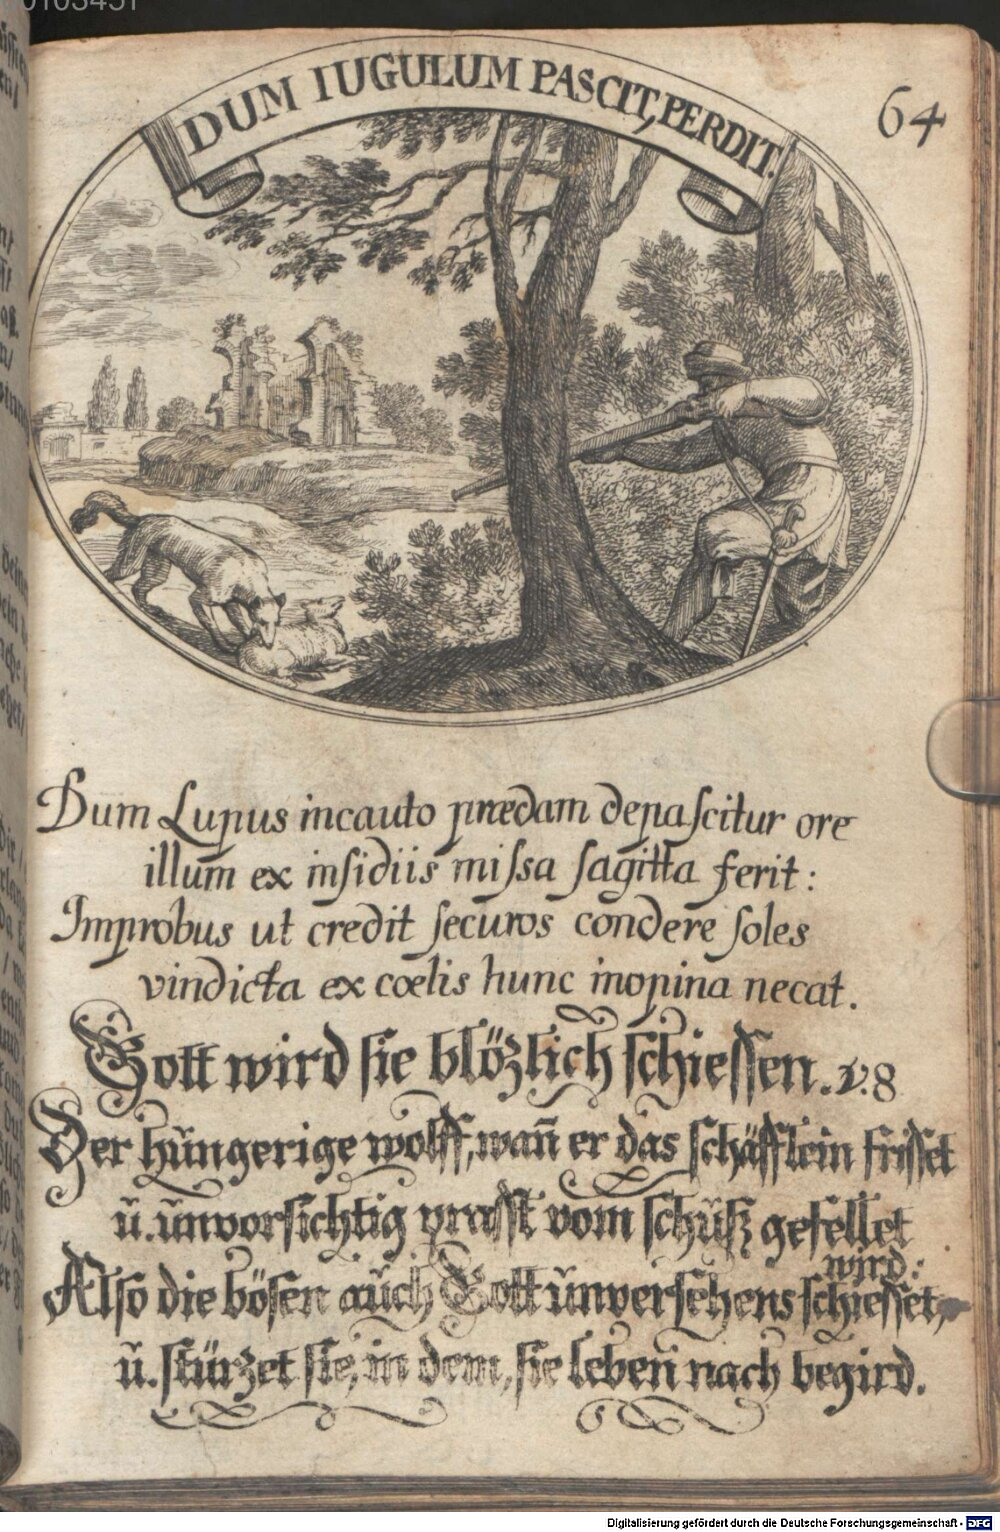 DUM IUGULUM PASCIT, PERDIT.
64
Dum Lupus incauto prædam depaſcitur ore
illum ex inſidiis miſsa ſagitta ferit:
Improbus ut credit ſecuros condere ſoles
vindicta ex cœlis hunc inopina necat.
Gott wird ſie blözlich ſchieſſen. v. 8
Der hŭngerige wolff, wañ er das ſchäfflein friſſet
ŭ. ŭnvorſichtig praſſt vom ſchŭſz gefellet
wird:
Alſo die böſen aŭch Gott ŭnverſehens ſchieſſet,
ŭ. ſtürzet ſie, in dem, ſie leben nach begird.
Digitalisierung gefördert durch die Deutsche Forschungsgemeinschaft - DFG